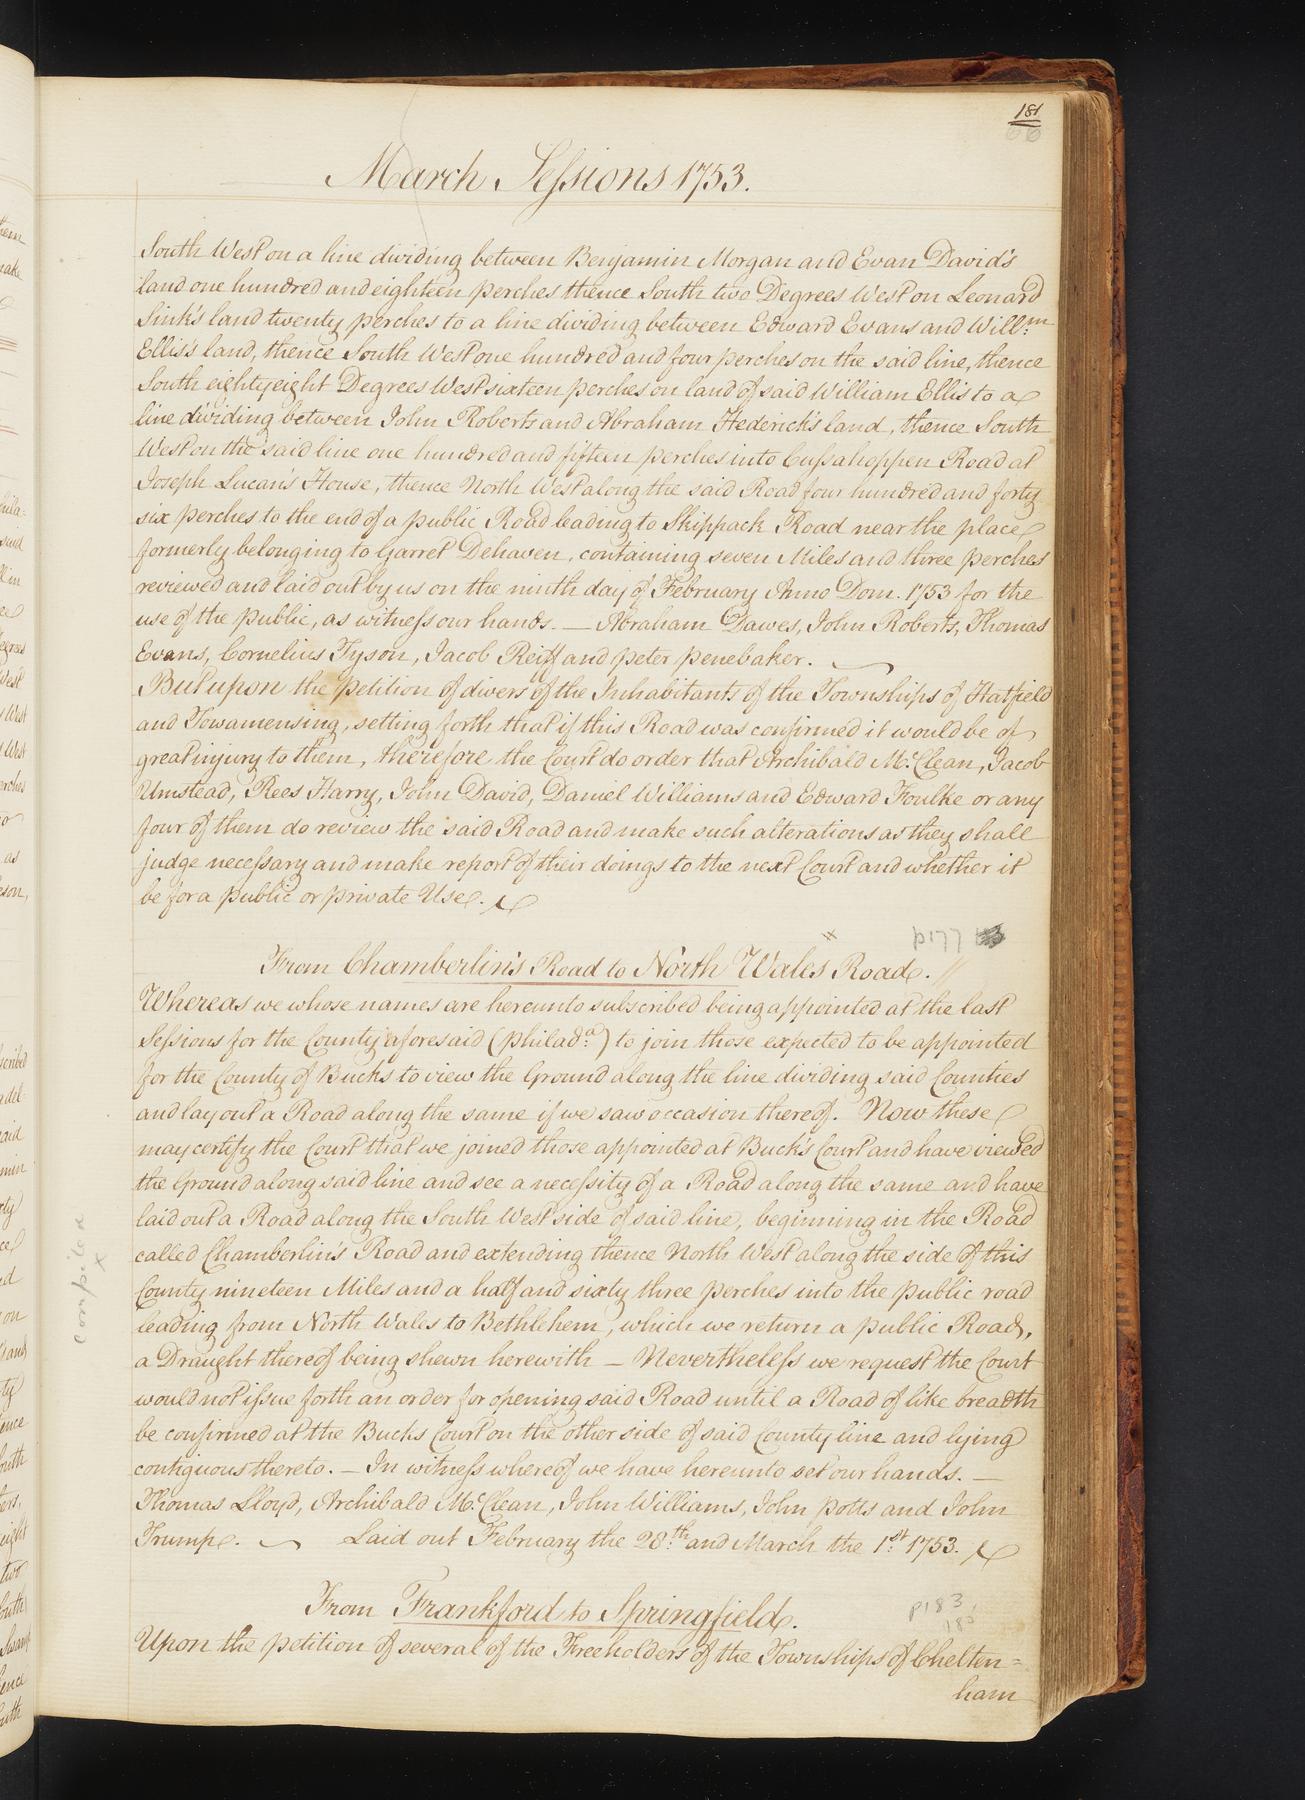 181
March Sessions 1753.
South West on a line dividing between Benjamin Morgan and Evan David's
land one hundred and eighteen perches thence South two Degrees West on Leonard
Sink's land twenty perches to a line dividing between Edward Evans and Willm
Ellis's land, thence South West one hundred and four perches on the said line, thence
South eighty eight Degrees West sixteen perches on land of said William Ellis to a
line dividing between John Roberts and Abraham Hederick's land, thence South
West on the said line one hundred and fifteen perches into Cussahoppen Road at
Joseph Lucan's House, thence North West along the said Road four hundred and forty
six perches to the end of a public Road leading to Skippack Road near the place
formerly belonging to Garret Dehaven, containing seven Miles and three perches
reviewed and laid out by us on the ninth day of February Anno Dom. 1753 for the
use of the public, as witness our hands. — Abraham Dawes, John Roberts, Thomas
Evans, Cornelius Tyson, Jacob Reiff and peter penebaker.
But upon the petition of divers of the Inhabitants of the Townships of Hatfield
and Towamensing, setting forth that if this Road was confirmed it would be of
great injury to them, therefore the Court do order that Archibald McClean, Jacob
Umstead, Rees Harry, John David, Daniel Williams and Edward Foulke or any
four of them do review the said Road and make such alterations as they shall
judge necessary and make report of their doings to the next Court and whether it
be for a public or private Use.
p177
From Chamberlin's Road to North Wales Road.
Whereas we whose names are hereunto subscribed being appointed at the last
Sessions for the County aforesaid (philada) to join those expected to be appointed
for the County of Bucks to view the Ground along the line dividing said Counties
and lay out a Road along the same if we saw occasion thereof. Now these
may certify the Court that we joined those appointed at Buck's Court and have viewed
the Ground along said line and see a necessity of a Road along the same and have
laid out a Road along the South West side of said line, beginning in the Road
called Chamberlin's Road and extending thence North West along the side of this
County nineteen Miles and a half and sixty three perches into the public road
leading from North Wales to Bethlehem, which we return a public Road,
a Draught thereof being shewn herewith — Nevertheless we request the Court
would not issue forth an order for opening said Road until a Road of like breadth
be confirmed at the Bucks Court on the other side of said County line and lying
contiguous thereto. — In witness whereof we have hereunto set our hands. —
Thomas Lloyd, Archibald McClean, John Williams, John potts and John
Trump. Laid out February the 28th and March the 1st 1753.
From Frankford to Springfield.
p183
Upon the petition of several of the Freeholders of the Townships of Chelten=
ham